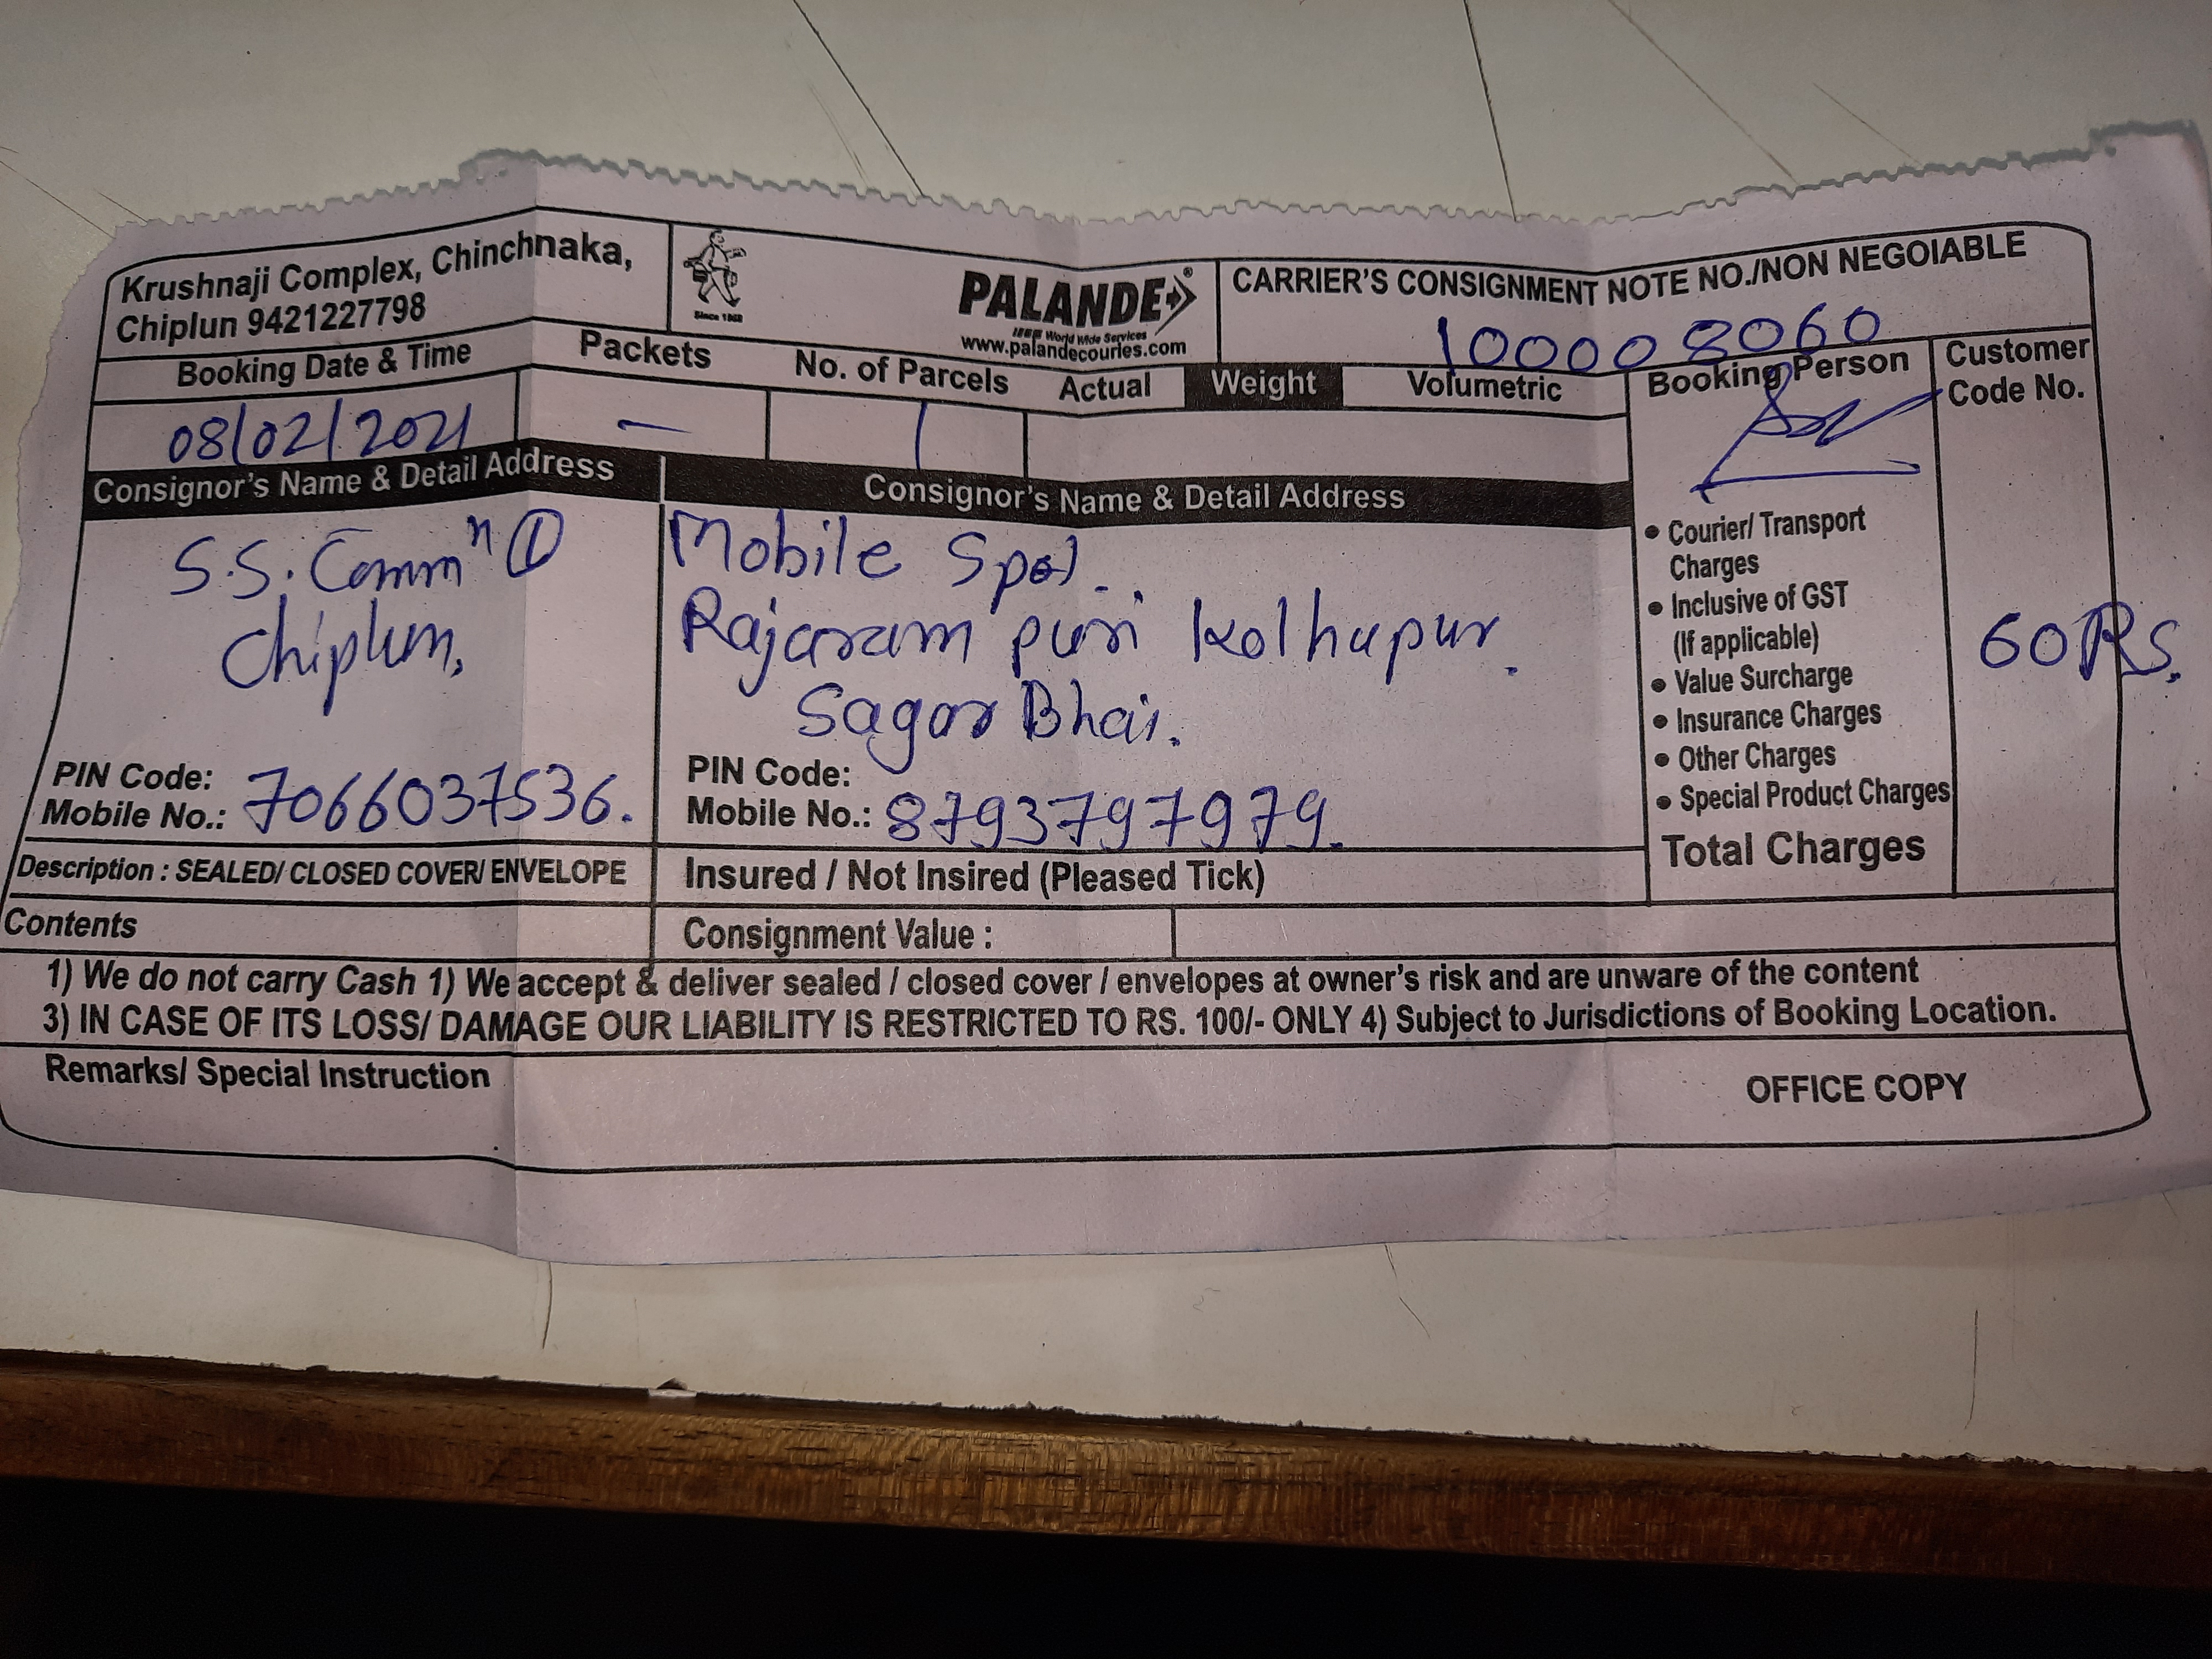 Krushnaji Complex, Chinchnaka,
Chiplun 9421227798
Since 1982
PALANDE®
World Wide Services
www.palandecouries.com
CARRIER'S CONSIGNMENT NOTE NO./NON NEGOIABLE
100008060
Booking Date & Time
Packets
No. of Parcels
Actual
Weight
Volumetric
Booking Person
Customer
Code No.
08/02/2021
—
1
Consignor's Name & Detail Address
Consignor's Name & Detail Address
S.S. Commn ①
Chiplun,
Mobile Spot
Rajarampuri Kolhapur.
Sagar Bhai.
PIN Code:
Mobile No.: 7066037536.
PIN Code:
Mobile No.: 8793797979.
• Courier/ Transport
Charges
• Inclusive of GST
(If applicable)
• Value Surcharge
• Insurance Charges
• Other Charges
• Special Product Charges
60 Rs.
Description : SEALED/ CLOSED COVER/ ENVELOPE
Insured / Not Insired (Pleased Tick)
Total Charges
Contents
Consignment Value :
1) We do not carry Cash 1) We accept & deliver sealed / closed cover / envelopes at owner's risk and are unware of the content
3) IN CASE OF ITS LOSS/ DAMAGE OUR LIABILITY IS RESTRICTED TO RS. 100/- ONLY 4) Subject to Jurisdictions of Booking Location.
Remarks/ Special Instruction
OFFICE COPY